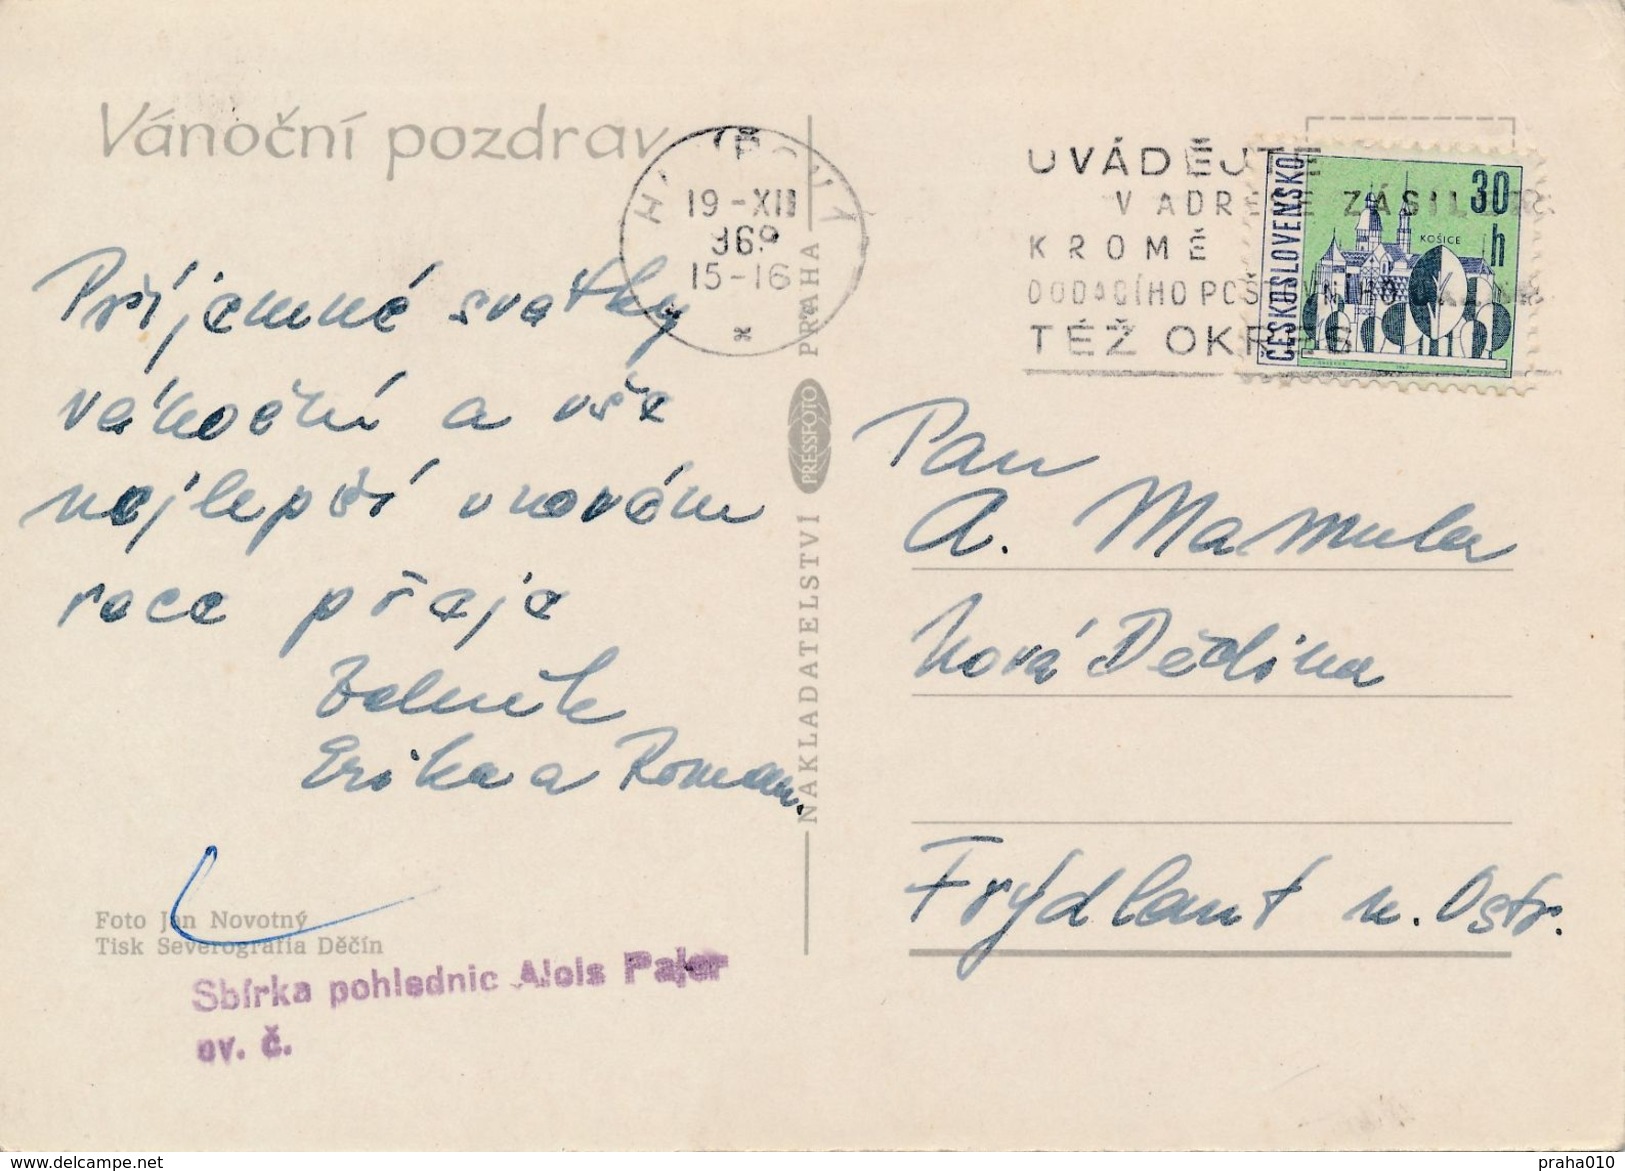 Vánoční pozdrav
19-XII
969
15-16
UVÁDĚJTE
V ADRESE ZÁSILKY
KROMĚ
DODACÍHO POŠTOVNÍHO
TÉŽ OKRES
ČESKOSLOVENSKO
30
h
KOŠICE
Příjemné svátky
vánoční a vše
nejlepší v novém
roce přeje
Erika a Roman.
NAKLADATELSTVÍ PRESSFOTO PRAHA
Pan
A. Mamula
Nová Dědina
Frýdlant n. Ostr.
Foto Jan Novotný
Tisk Severografia Děčín
Sbírka pohlednic Alois Pajer
ev. č.
www.delcampe.net
praha010